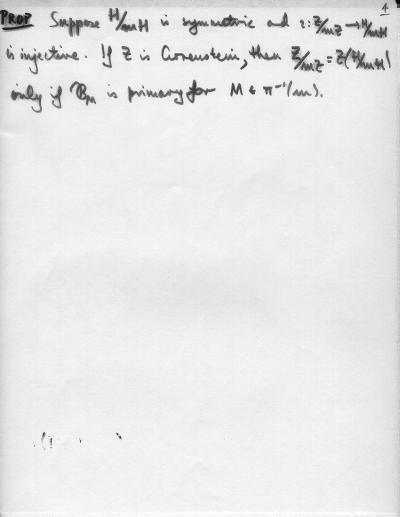 4
PROP Suppose H/mH is symmetric and ι: Z/mZ → H/mH
is injective. If Z is Gorenstein, then Z/mZ = Z(H/mH)
only if B_M is primary for M ∈ π⁻¹(m).